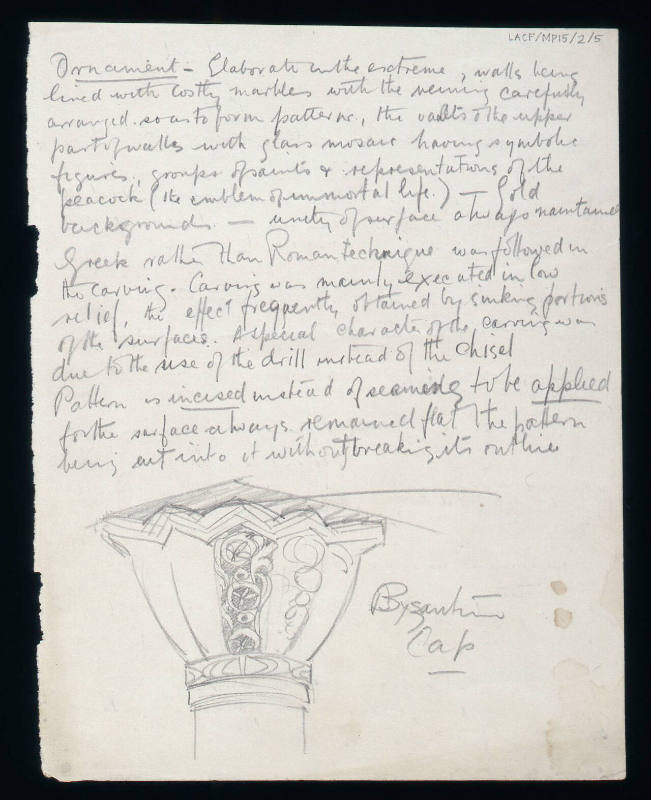 LACF/MP15/2/5
Ornament - Elaborate in the extreme, walls being
lined with costly marbles with the veining carefully
arranged. so as to form patterns., the vaults & the upper
part of walls with glass mosaic having symbolic
figures, groups of saints & representations of the
peacock (the emblem of immortal life.) — Gold
backgrounds. — unity of surface always maintained
Greek rather than Roman technique was followed in
the carving. Carving was mainly executed in low
relief, the effect frequently obtained by sinking portions
of the surfaces. A special character of the carving was
due to the use of the drill instead of the chisel
Pattern is incised instead of seeming to be applied
for the surface always remained flat the pattern
being cut into it without breaking its outline
Byzantine
Cap